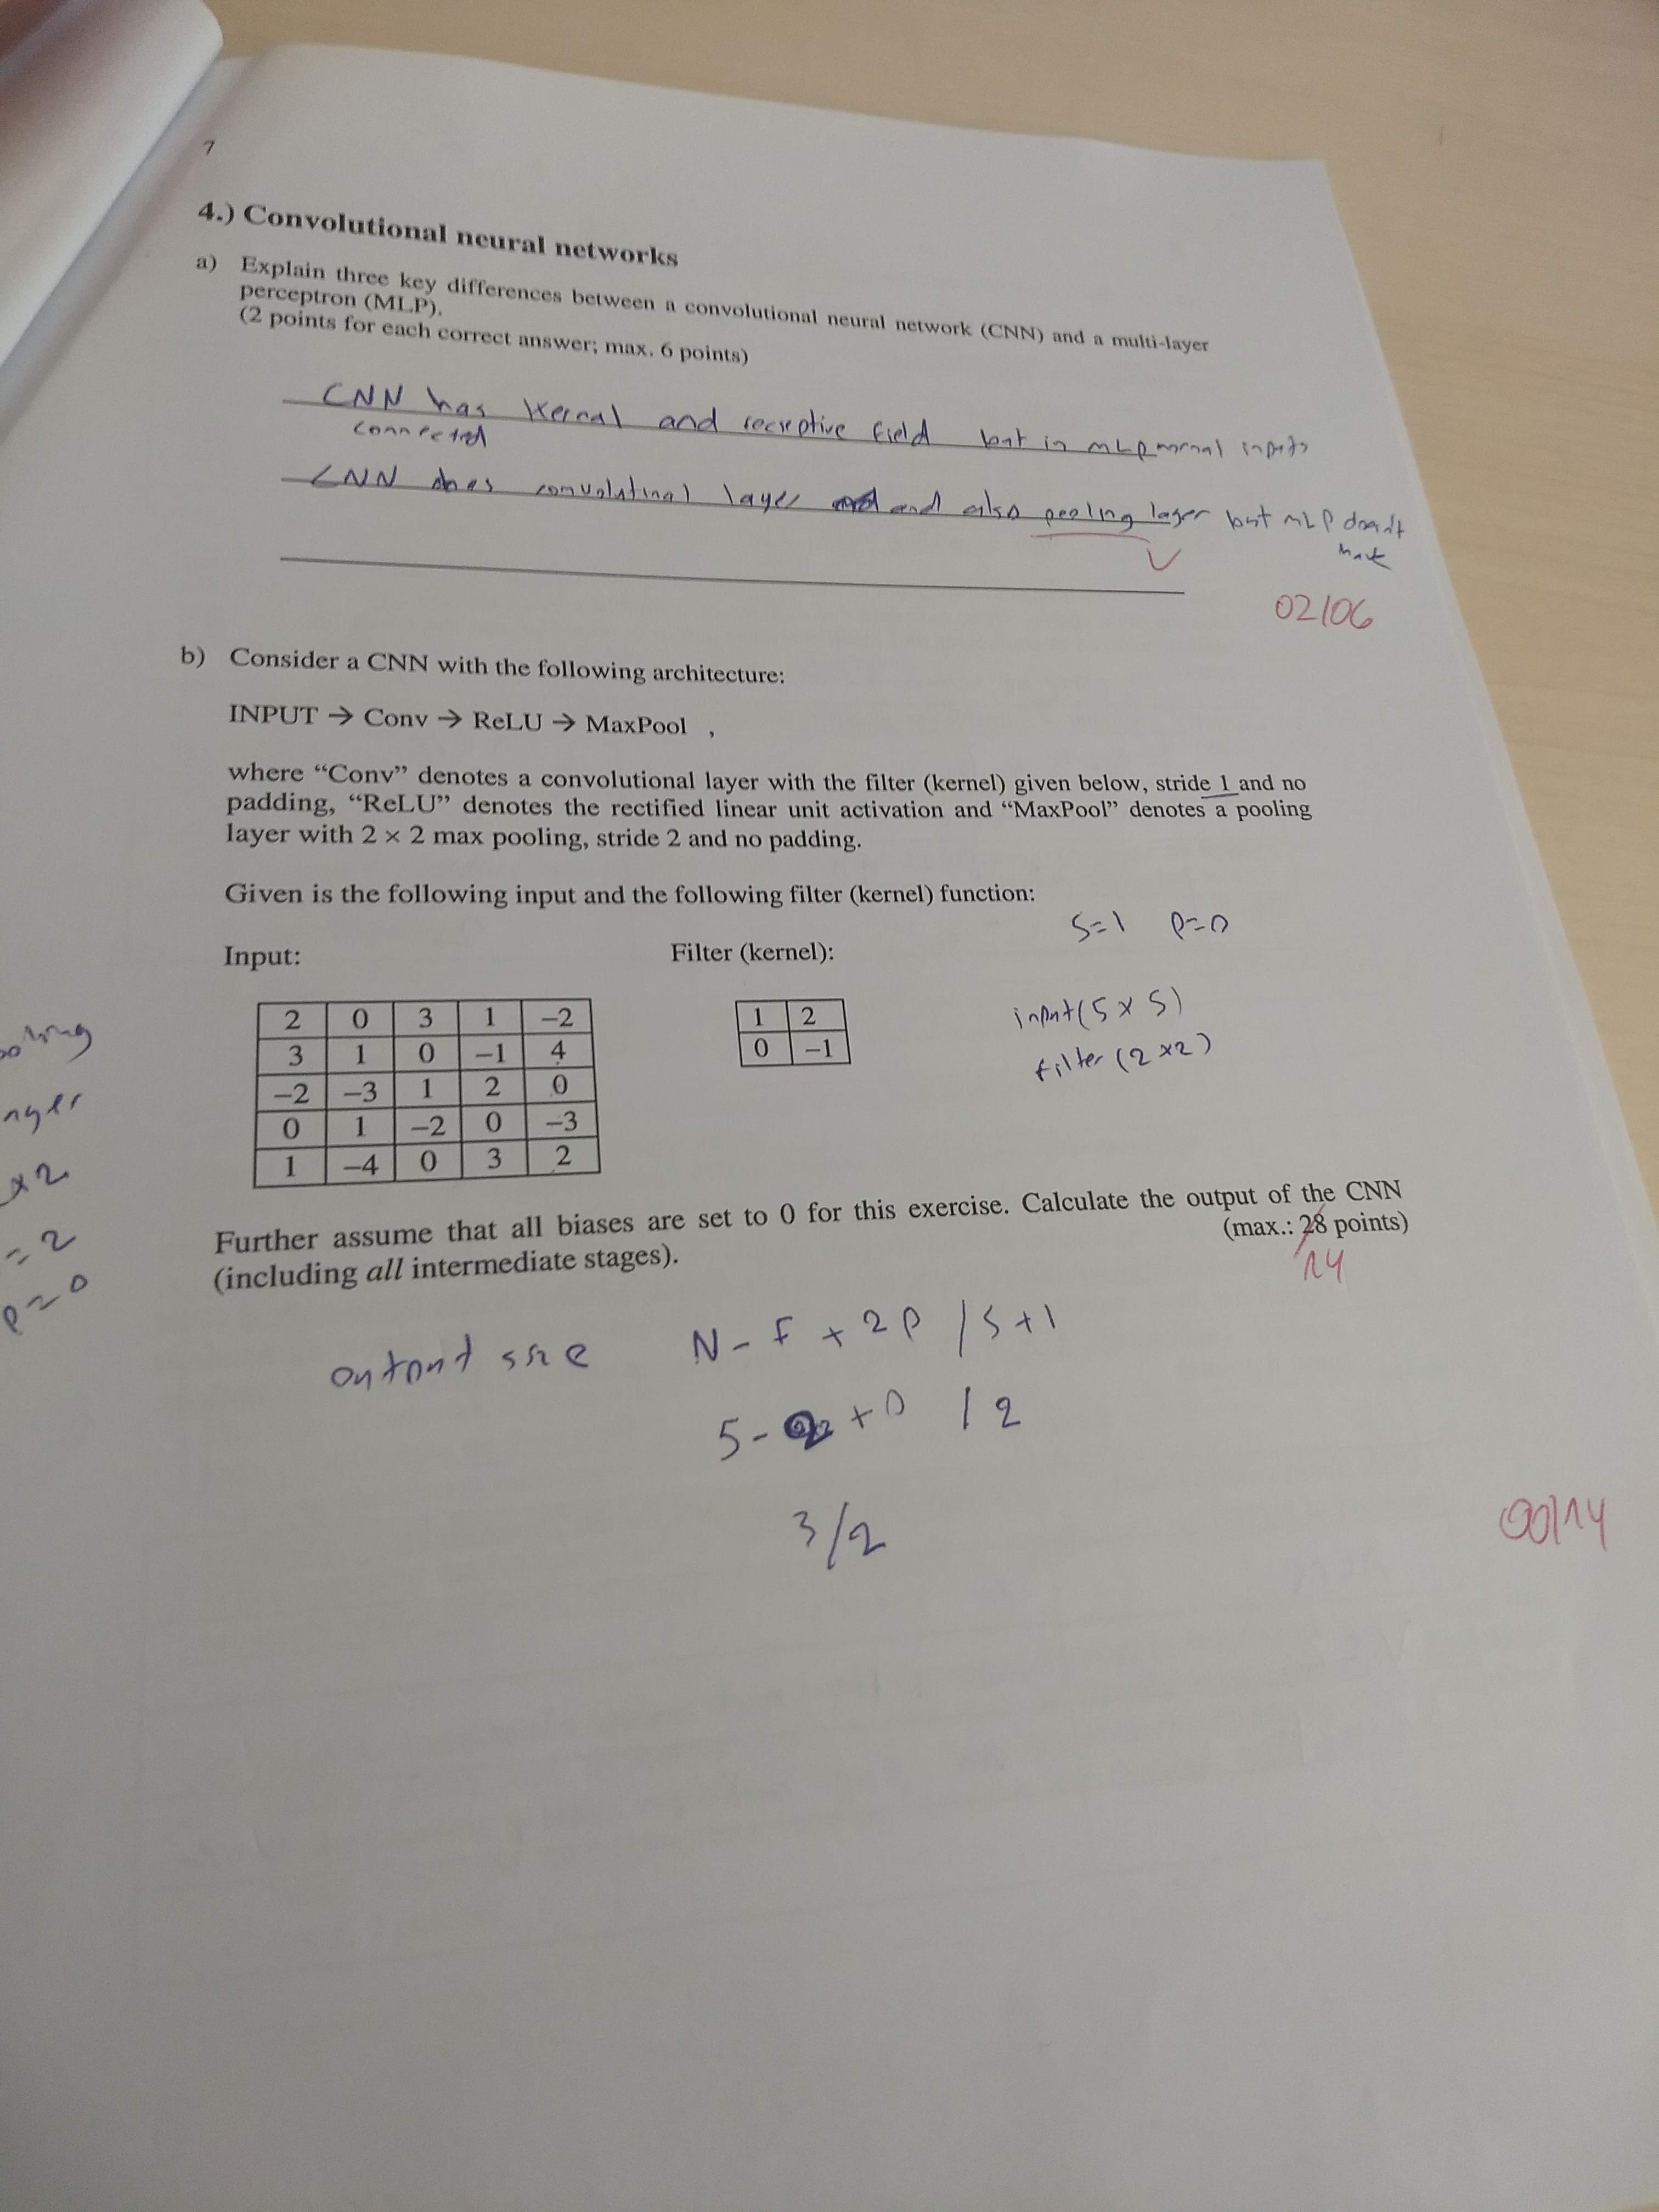 7
4.) Convolutional neural networks
a) Explain three key differences between a convolutional neural network (CNN) and a multi-layer
perceptron (MLP).
(2 points for each correct answer; max. 6 points)
CNN has Kernal and receptive field but in MLP normal inputs
connected
CNN does convolutinal layer and also pooling layer but MLP doesn't
have
02/06
b) Consider a CNN with the following architecture:
INPUT → Conv → ReLU → MaxPool ,
where “Conv” denotes a convolutional layer with the filter (kernel) given below, stride 1 and no
padding, “ReLU” denotes the rectified linear unit activation and “MaxPool” denotes a pooling
layer with 2 × 2 max pooling, stride 2 and no padding.
Given is the following input and the following filter (kernel) function:
S=1 P=0
Input: Filter (kernel):
input(5 x 5)
filter (2 x2)
2 0 3 1 –2
3 1 0 –1 4
–2 –3 1 2 0
0 1 –2 0 –3
1 –4 0 3 2
1 2
0 –1
x2
= 2
P=0
Further assume that all biases are set to 0 for this exercise. Calculate the output of the CNN
(including all intermediate stages). (max.: 28 points)
14
output size N - F + 2P / S+1
5 - 2 + 0 / 2
3/2
00/14